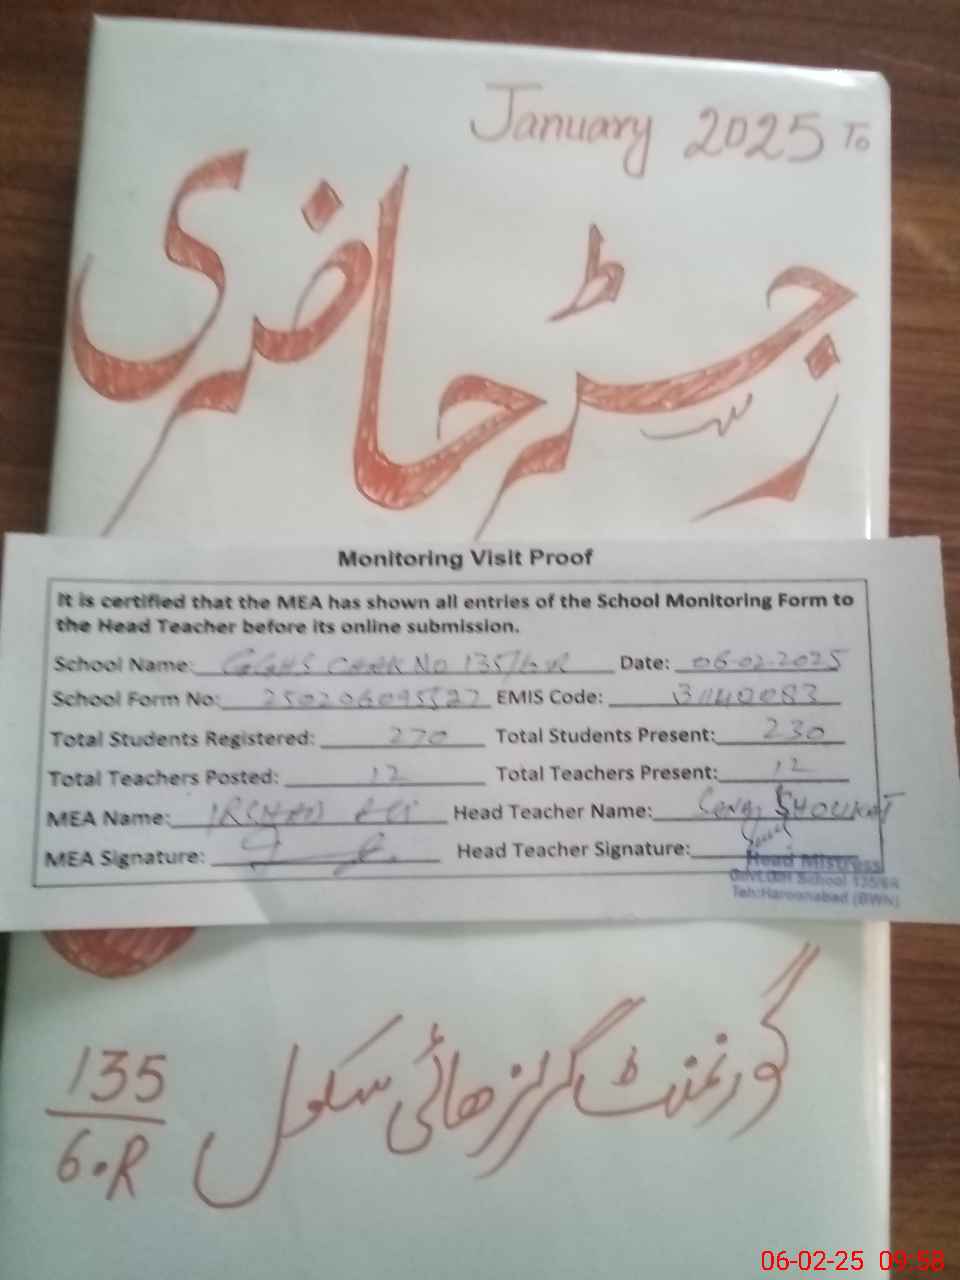 January 2025 To
رجسٹر حاضری
Monitoring Visit Proof
It is certified that the MEA has shown all entries of the School Monitoring Form to
the Head Teacher before its online submission.
School Name: GGHS CHAK NO 135/6R Date: 06-02-2025
School Form No: 250206095527 EMIS Code: 31140083
Total Students Registered: 270 Total Students Present: 230
Total Teachers Posted: 12 Total Teachers Present: 12
MEA Name: IRSHAD ALI Head Teacher Name: SHOUKAT
MEA Signature: Head Teacher Signature:
Head Mistress
Govt. Girls High School 135/6R
Teh: Haroonabad (BWN)
گورنمنٹ گرلز ھائی سکول
135
6.R
06-02-25 09:58